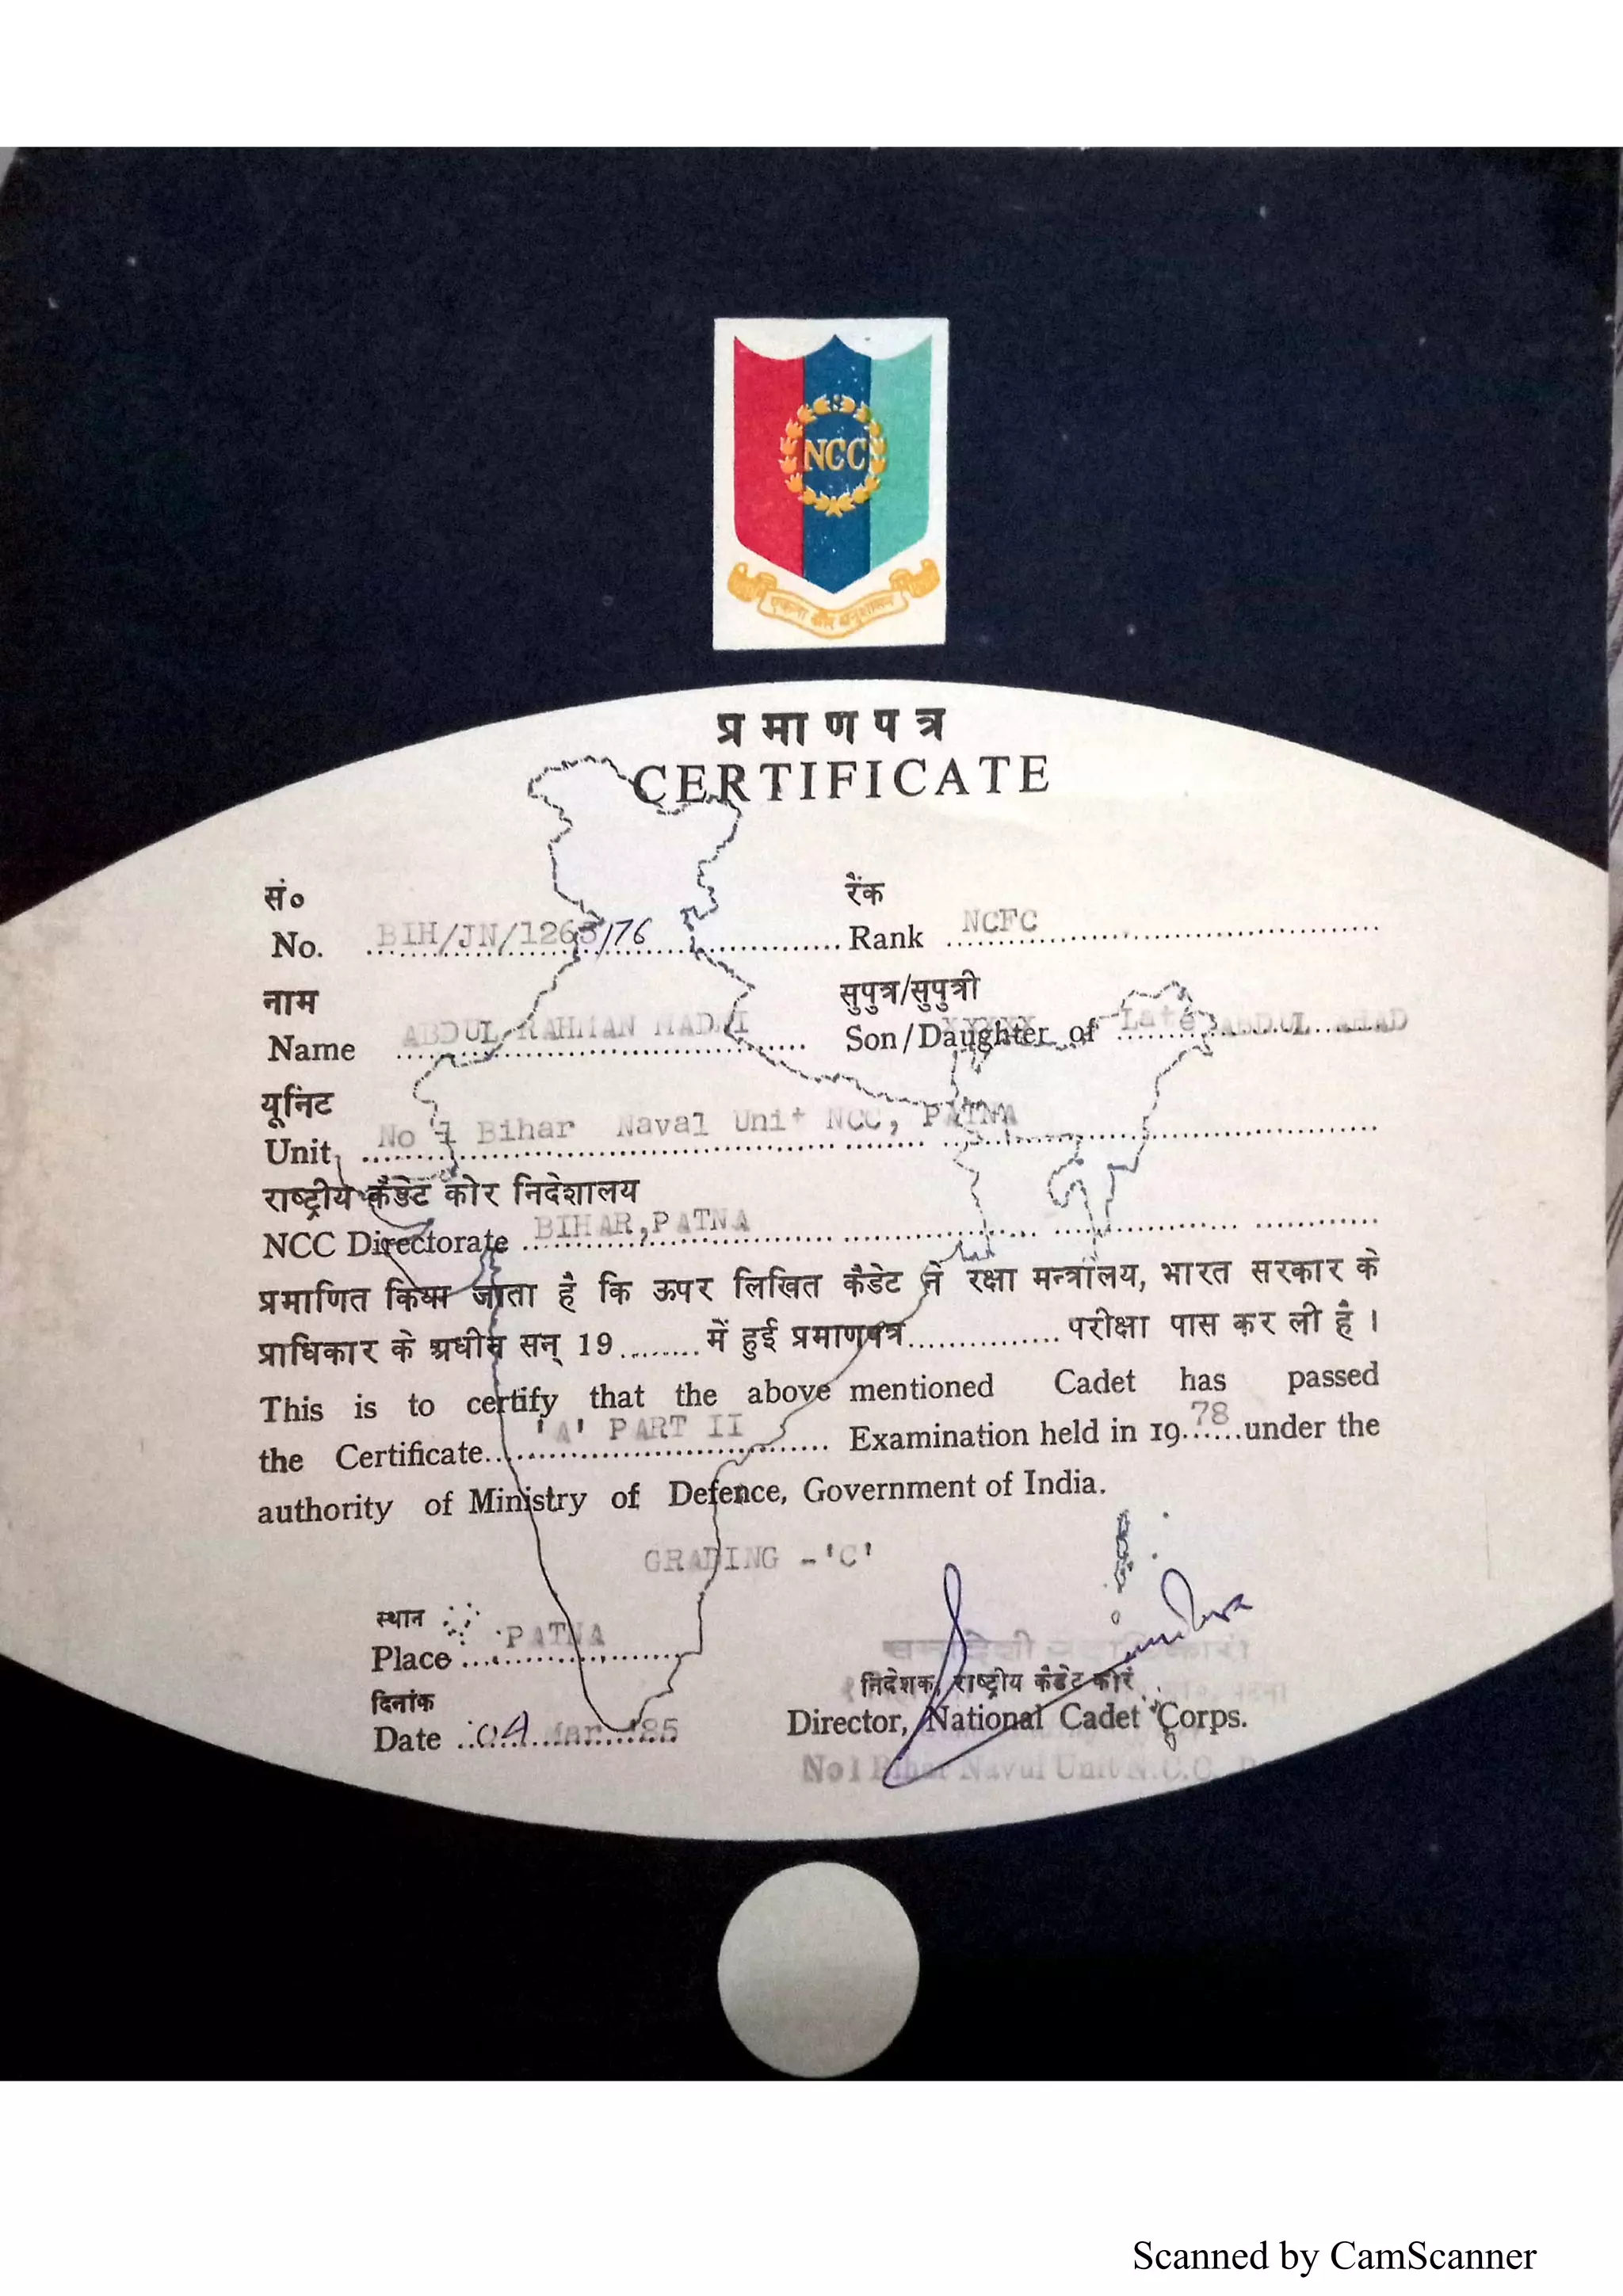 NCC
एकता और अनुशासन
प्रमाणपत्र
CERTIFICATE
सं० रैंक
No. BIH/JN/1263/76 Rank NCFC
नाम सुपुत्र/सुपुत्री
Name ABDUL RAHMAN Son/Daughter of Late ABDUL AHAD
यूनिट
Unit No 1 Bihar Naval Unit NCC, PATNA
राष्ट्रीय कैडेट कोर निदेशालय
NCC Directorate BIHAR,PATNA
प्रमाणित किया जाता है कि ऊपर लिखित कैडेट ने रक्षा मन्त्रालय, भारत सरकार के
प्राधिकार के अधीन सन् 19.........में हुई प्रमाणपत्र...............परीक्षा पास कर ली है ।
This is to certify that the above mentioned Cadet has passed
the Certificate 'A' PART II Examination held in 1978 under the
authority of Ministry of Defence, Government of India.
GRADING -'C'
स्थान
Place PATNA
निदेशक, राष्ट्रीय कैडेट कोर
दिनांक
Director, National Cadet Corps.
Date 04 Mar '85
No 1 Bihar Naval Unit N.C.C.
Scanned by CamScanner